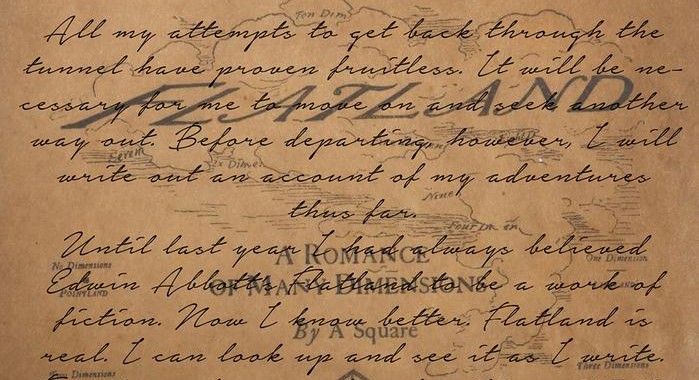 All my attempts to get back through the
tunnel have proven fruitless. It will be ne-
cessary for me to move on and seek another
way out. Before departing however, I will
write out an account of my adventures
thus far.
Until last year I had always believed
Edwin Abbott's Flatland to be a work of
fiction. Now I know better. Flatland is
real. I can look up and see it as I write.
FLATLAND
A ROMANCE
OF MANY DIMENSIONS
By A Square
No Dimensions
POINTLAND
One Dimension
Three Dimensions